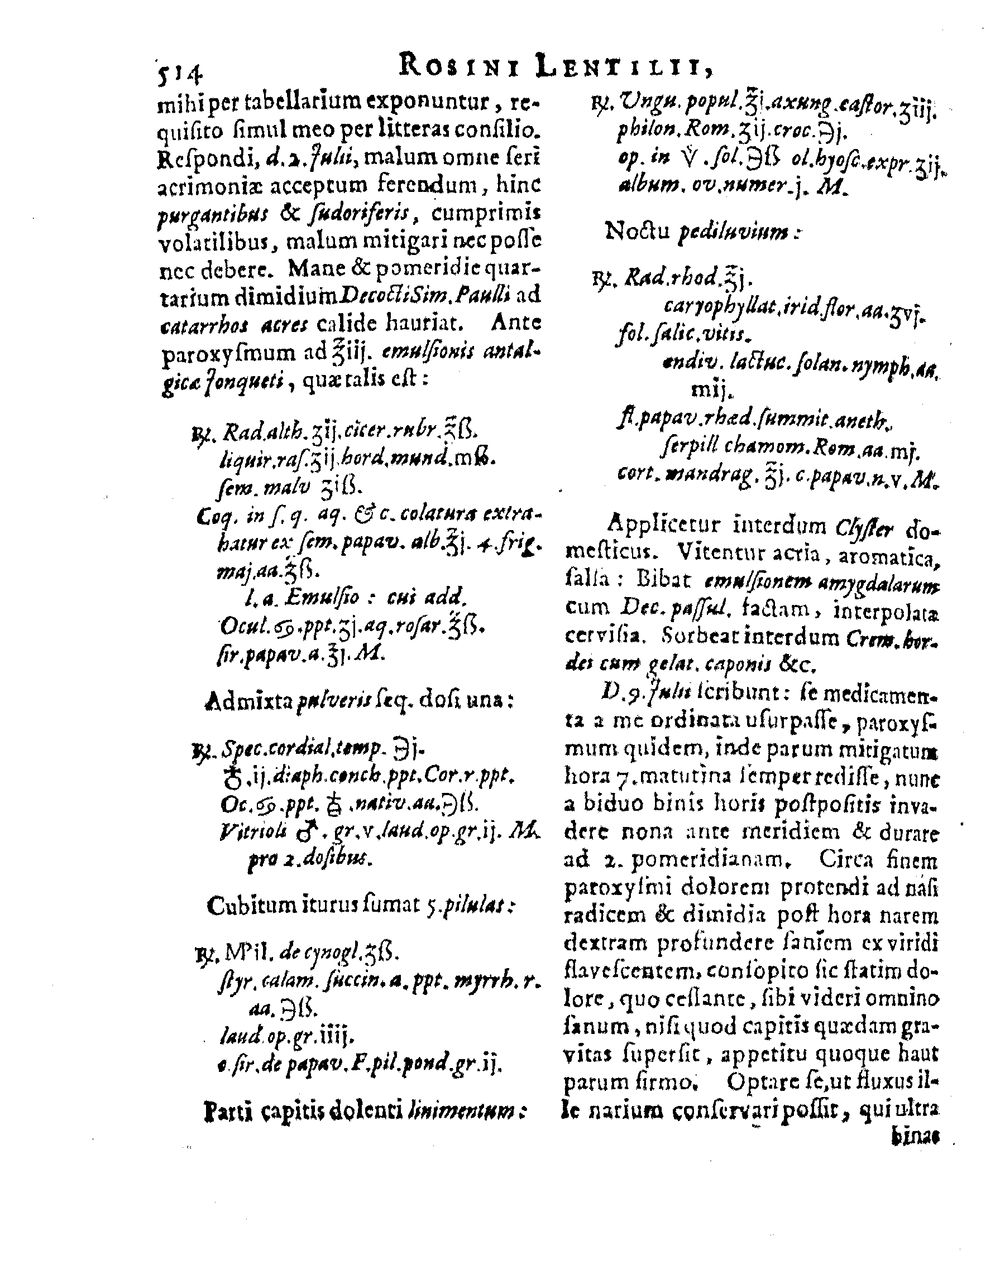 514
ROSINI LENTILII,
mihi per tabellarium exponuntur, re-
quiſito ſimul meo per litteras conſilio.
Reſpondi, d. 2. Julii, malum omne ſeri
acrimoniæ acceptum ferendum, hinc
purgantibus & ſudoriferis, cumprimis
volatilibus, malum mitigari nec poſſe
nec debere. Mane & pomeridie quar-
tarium dimidium Decocti Sim. Paulli ad
catarrhos acres calide hauriat. Ante
paroxyſmum ad ℥iij. emulſionis antal-
gicæ Jonqueti, quæ talis eſt:
℞. Rad. alth. ʒij. cicer. rubr. ℥ß.
liquir. raſ. ʒij. hord. mund. mß.
ſem. malv ʒiß.
Coq. in ſ. q. aq. & c. colatura extra-
hatur ex ſem. papav. alb. ℥j. 4. frig.
maj. aa. ℥ß.
l. a. Emulſio: cui add.
Ocul. ♋. ppt. ʒj. aq. roſar. ℥ß.
ſir. papav. a. ℥j. M.
Admixta pulveris ſeq. doſi una:
℞. Spec. cordial. temp. ℈j.
♁. ij. diaph. conch. ppt. Cor. r. ppt.
Oc. ♋. ppt. nativ. aa. ℈ß.
Vitrioli ♂. gr. v. laud. op. gr. ij. M.
pro 2. doſibus.
Cubitum iturus ſumat 5. pilulas:
℞. M Pil. de cynogl. ʒß.
ſtyr. calam. ſuccin. a. ppt. myrrh. r.
aa. ℈ß.
laud. op. gr. iiij.
c. ſir. de papav. F. pil. pond. gr. ij.
Parti capitis dolenti linimentum:
℞. Ungu. popul. ℥j. axung. caſtor. ʒiij.
philon. Rom. ʒij. croc. ℈j.
op. in . ſol. ℈ß ol. hyoſc. expr. ʒij.
album. ov. numer. j. M.
Noctu pediluvium:
℞. Rad. rhod. ℥j.
caryophyllat. irid. flor. aa. ʒvj.
fol. ſalic. vitis.
endiv. lactuc. ſolan. nymph. aa.
mij.
fl. papav. rhœd. ſummit. aneth.
ſerpill chamom. Rom. aa. mj.
cort. mandrag. ℥j. c. papav. n. v. M.
Applicetur interdum Clyſter do-
meſticus. Vitentur acria, aromatica,
ſalſa: Bibat emulſionem amygdalarum
cum Dec. paſſul. factam, interpolata
cerviſia. Sorbeat interdum Crem. hor-
dei cum gelat. caponis &c.
D. 9. Julii ſcribunt: ſe medicamen-
ta a me ordinata uſurpaſſe, paroxyſ-
mum quidem, inde parum mitigatum
hora 7. matutina ſemper rediſſe, nunc
a biduo binis horis poſtpoſitis inva-
dere nona ante meridiem & durare
ad 2. pomeridianam. Circa finem
paroxyſmi dolorem protendi ad naſi
radicem & dimidia poſt hora narem
dextram profundere ſaniem ex viridi
flaveſcentem, conſopito ſic ſtatim do-
lore, quo ceſſante, ſibi videri omnino
ſanum, niſi quod capitis quædam gra-
vitas ſuperſit, appetitu quoque haut
parum firmo. Optare ſe, ut fluxus il-
le narium conſervari poſſit, qui ultra
binas